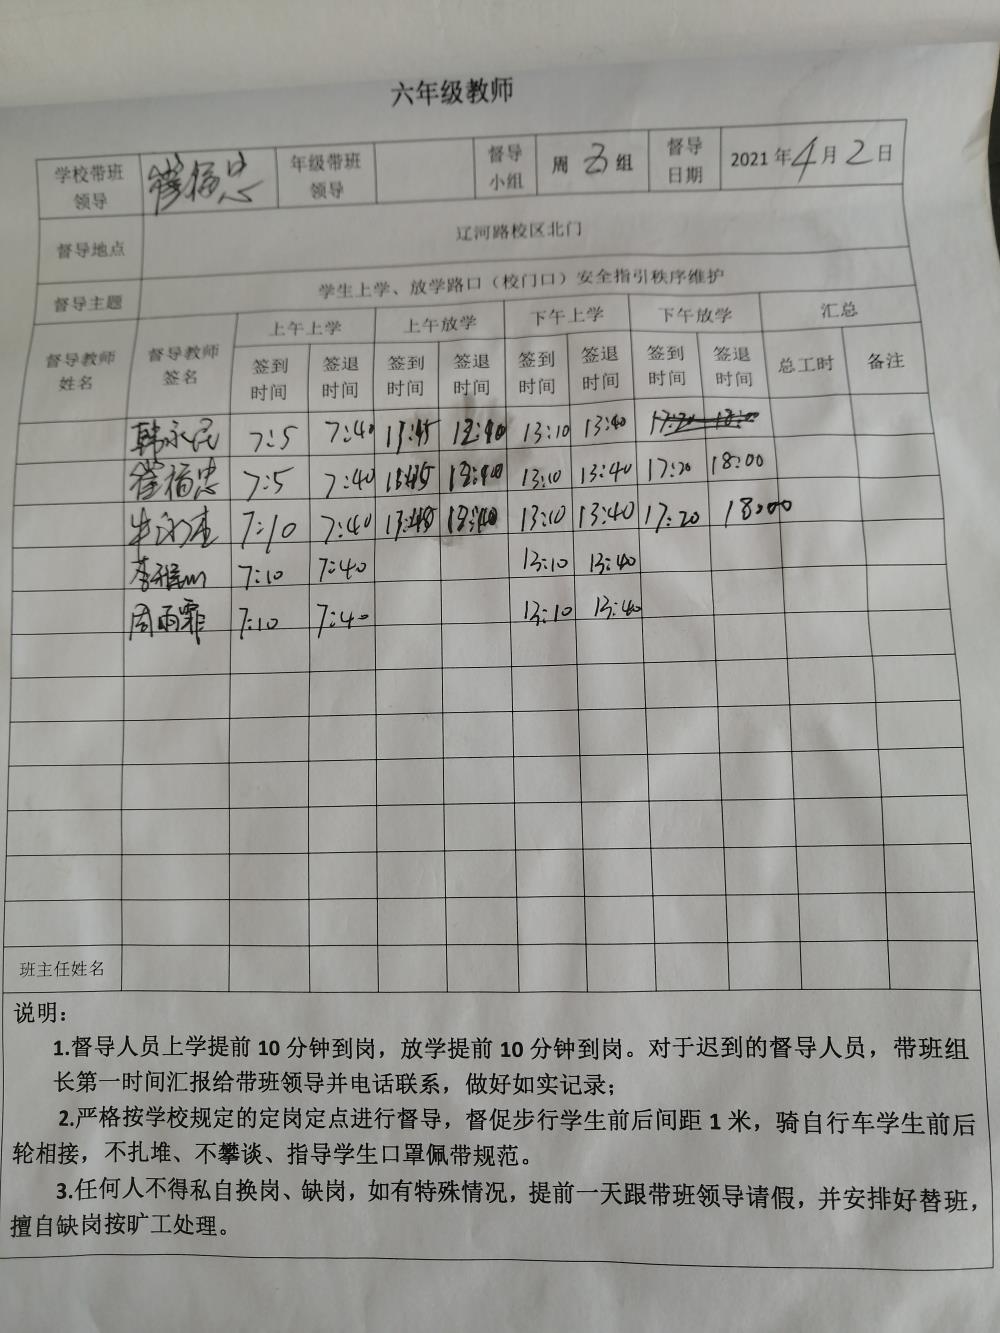 六年级教师
学校带班领导 崔福忠 年级带班领导 督导小组 周五组 督导日期 2021年4月2日
督导地点 辽河路校区北门
督导主题 学生上学、放学路口（校门口）安全指引秩序维护
督导教师姓名 督导教师签名 上午上学 上午放学 下午上学 下午放学 汇总
签到时间 签退时间 签到时间 签退时间 签到时间 签退时间 签到时间 签退时间 总工时 备注
韩永民 7:5 7:40 13:10 13:40
崔福忠 7:5 7:40 13:10 13:40 17:20 18:00
7:10 7:40 13:10 13:40 17:20 18:00
7:10 7:40 13:10 13:40
周雨霏 7:10 7:40 13:10 13:40
班主任姓名
说明：
1.督导人员上学提前10分钟到岗，放学提前10分钟到岗。对于迟到的督导人员，带班组
长第一时间汇报给带班领导并电话联系，做好如实记录；
2.严格按学校规定的定岗定点进行督导，督促步行学生前后间距1米，骑自行车学生前后
轮相接，不扎堆、不攀谈、指导学生口罩佩带规范。
3.任何人不得私自换岗、缺岗，如有特殊情况，提前一天跟带班领导请假，并安排好替班，
擅自缺岗按旷工处理。